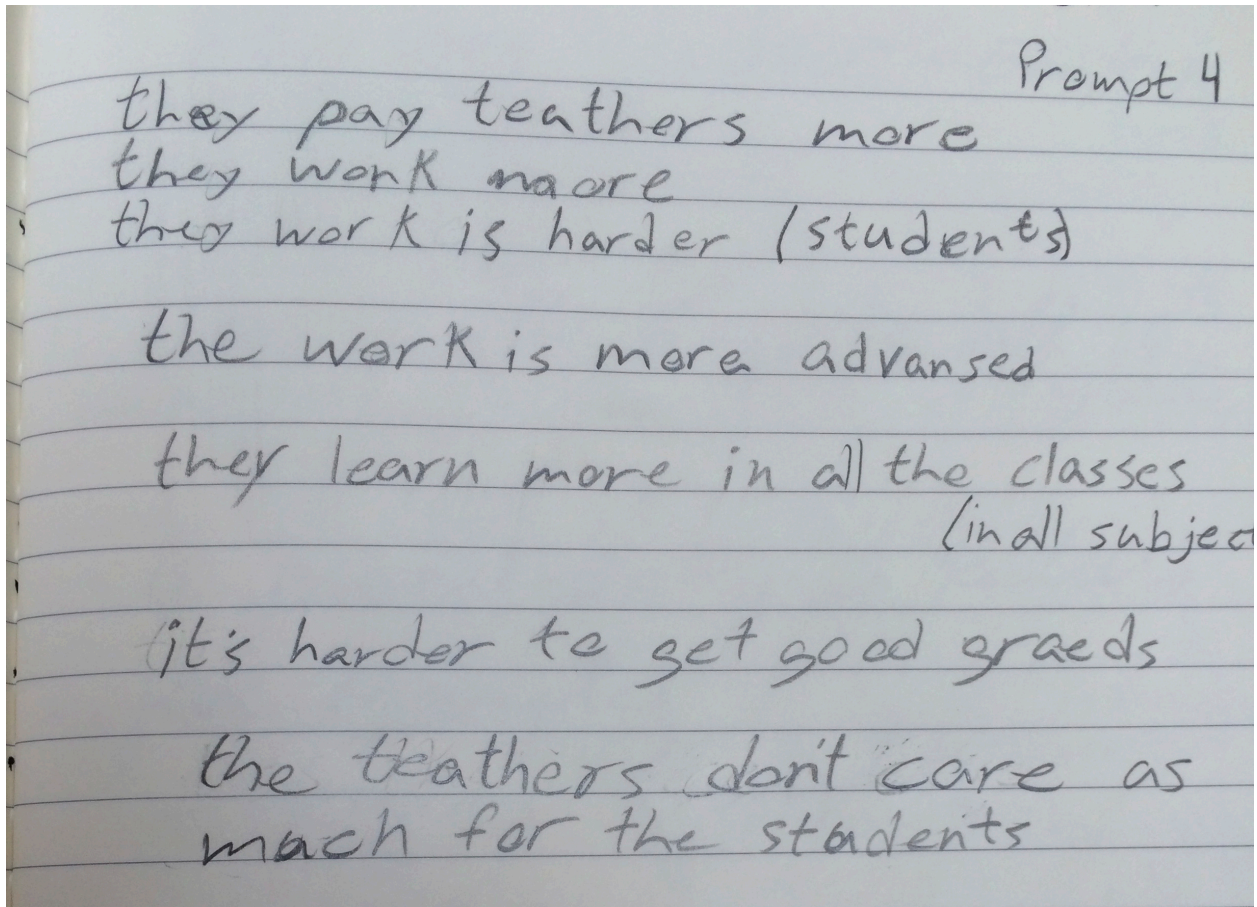 Prompt 4
they pay teathers more
they work maore
they work is harder (students)
the work is more advansed
they learn more in all the classes
(in all subject
it's harder to get good graeds
the teathers don't care as
mach for the students